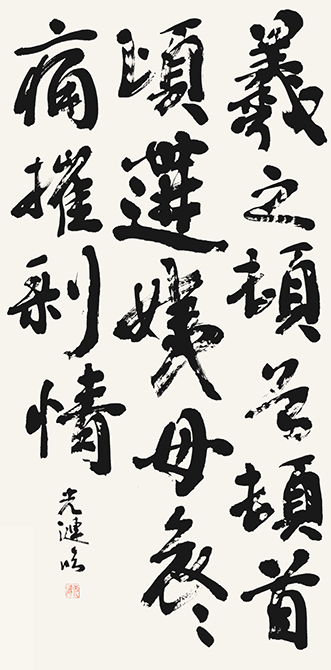 羲之頓首頓首
頃遘姨母哀〻
痛摧剥情
光漣臨